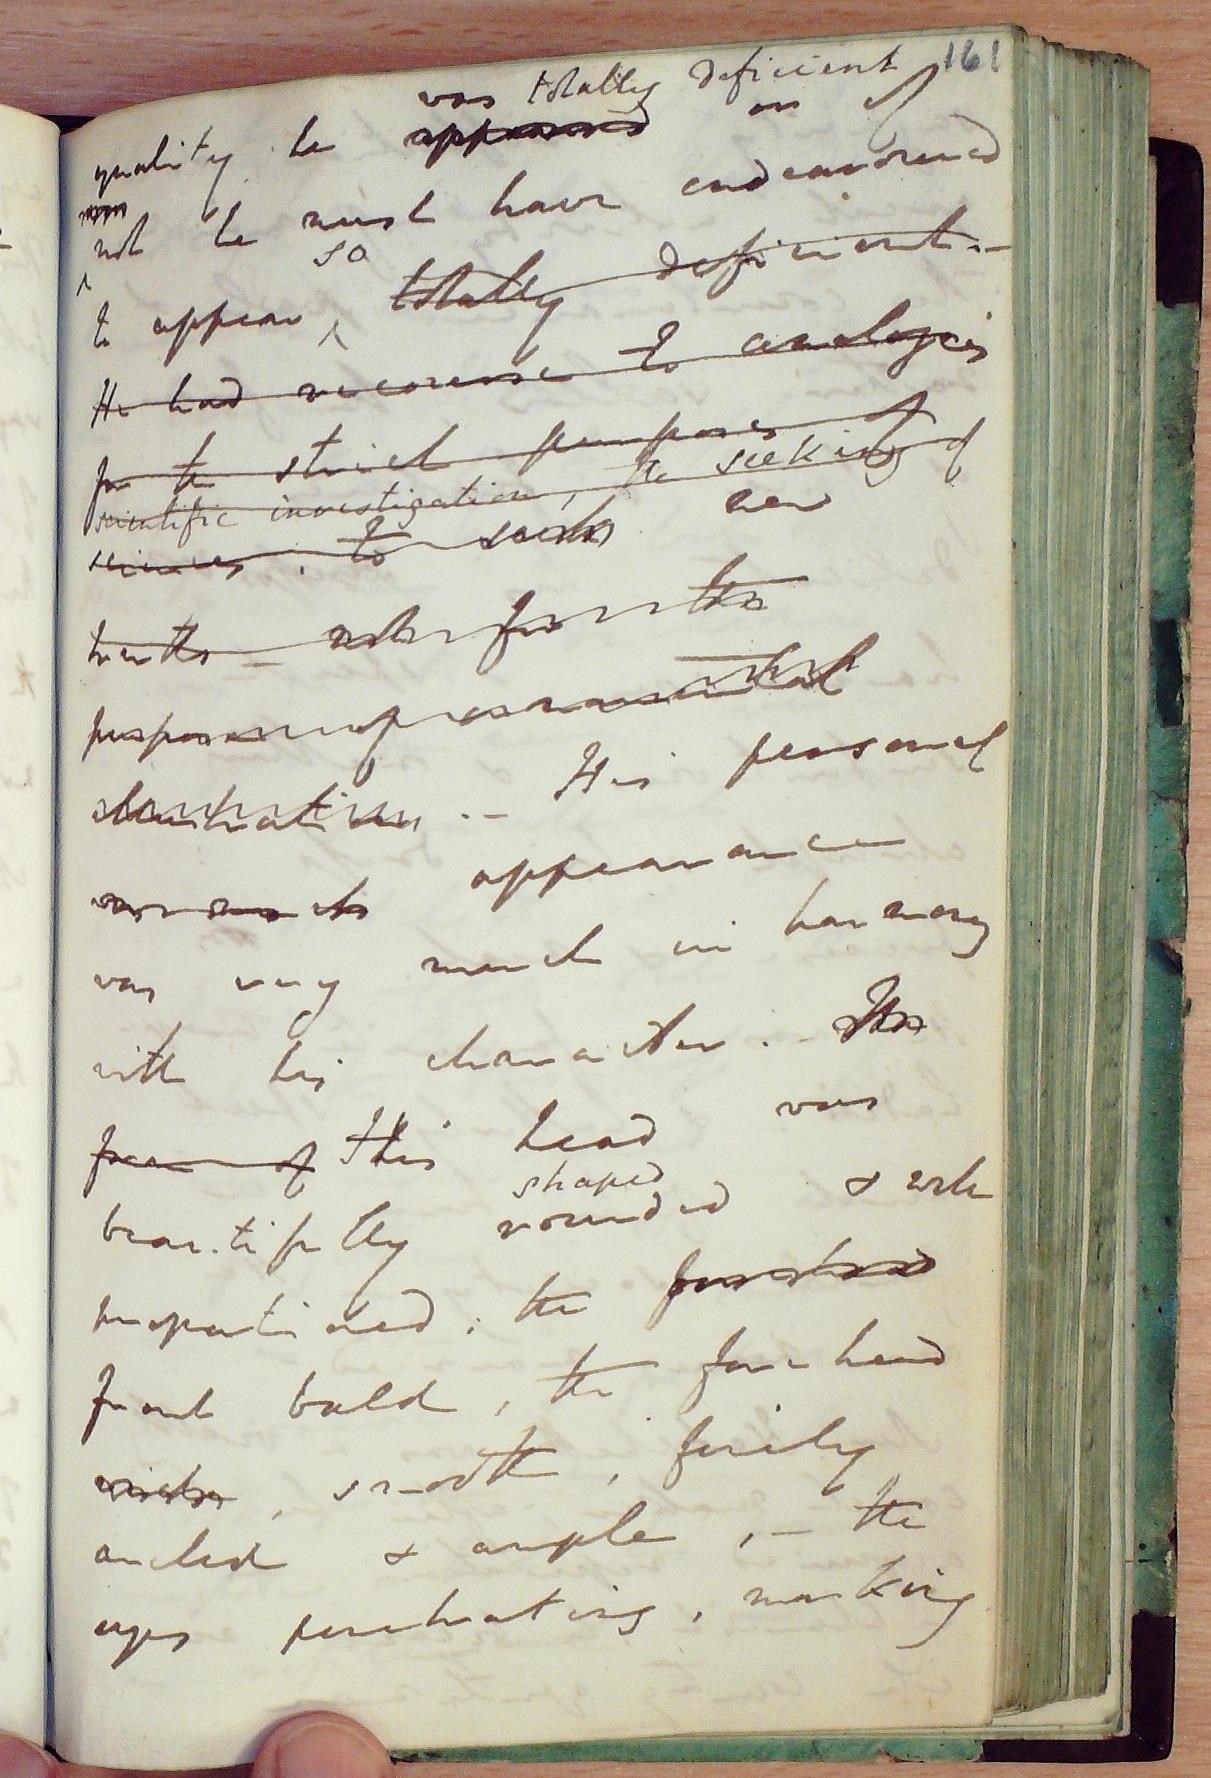 161
was totally deficient
quality he appeared or if
not he must have endeavoured
so
to appear totally deficient. –
He had recourse to analogies
for the strict purposes of
scientific investigation, the seeking of
sciences. to seek new
truths – not for the
purposes of
illustration. – His personal
appearance
was very much in harmony
with his character. –
form of His head was
shaped
beautifully rounded & well
proportioned; the forehead
front bald, the forehead
, smooth, finely
arched & ample, – the
eyes penetrating, marking